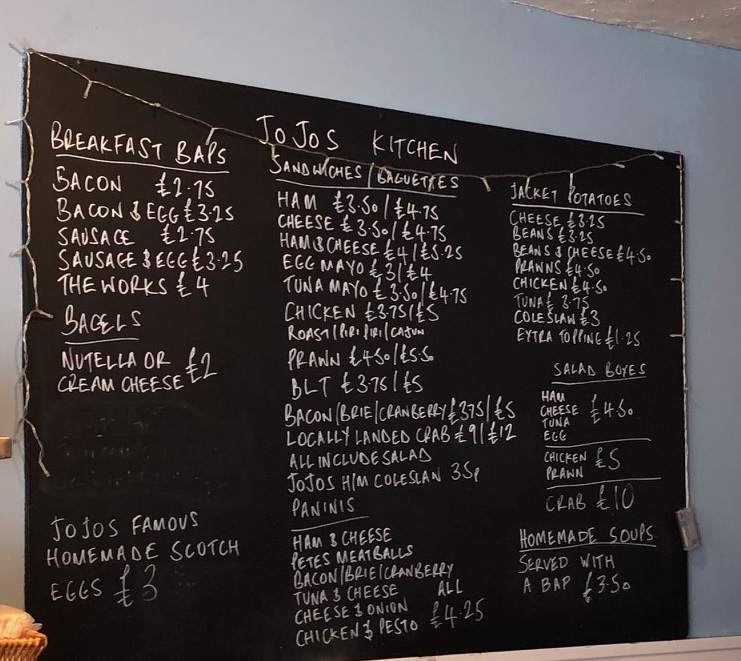 JOJOS KITCHEN
BREAKFAST BAPS
BACON £2.75
BACON & EGG £3.25
SAUSAGE £2.75
SAUSAGE & EGG £3.25
THE WORKS £4
BAGELS
NUTELLA OR
CREAM CHEESE £2
JOJOS FAMOUS
HOMEMADE SCOTCH
EGGS £3
SANDWICHES/BAGUETTES
HAM £3.50/£4.75
CHEESE £3.50/£4.75
HAM & CHEESE £4/£5.25
EGG MAYO £3/£4
TUNA MAYO £3.50/£4.75
CHICKEN £3.75/£5
ROAST/PIRI PIRI/CAJUN
PRAWN £4.50/£5.50
BLT £3.75/£5
BACON/BRIE/CRANBERRY £3.75/£5
LOCALLY LANDED CRAB £9/£12
ALL INCLUDE SALAD
JOJOS H/M COLESLAN 35p
PANINIS
HAM & CHEESE
PETES MEATBALLS
BACON/BRIE/CRANBERRY
TUNA & CHEESE ALL
CHEESE & ONION £4.25
CHICKEN & PESTO
JACKET POTATOES
CHEESE £3.25
BEANS £3.25
BEANS & CHEESE £4.50
PRAWNS £4.50
CHICKEN £4.50
TUNA £3.75
COLESLAW £3
EXTRA TOPPING £1.25
SALAD BOXES
HAM
CHEESE £4.50
TUNA
EGG
CHICKEN £5
PRAWN
CRAB £10
HOMEMADE SOUPS
SERVED WITH
A BAP £3.50